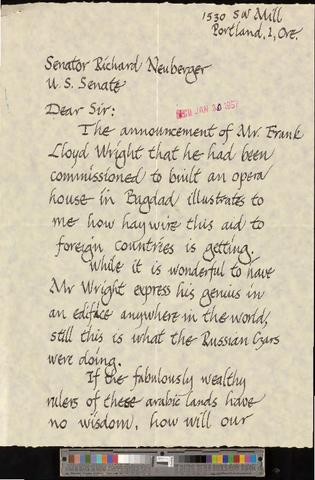 1530 SW Mill
Portland, 1, Ore.
Senator Richard Neuberger
U. S. Senate
Dear Sir:
JAN 30 1957
The announcement of Mr. Frank
Lloyd Wright that he had been
commissioned to built an opera
house in Bagdad illustrates to
me how haywire this aid to
foreign countries is getting.
While it is wonderful to have
Mr Wright express his genius in
an edifice anywhere in the world,
still this is what the Russian Czars
were doing.
If the fabulously wealthy
rulers of these arabic lands have
no wisdom, how will our